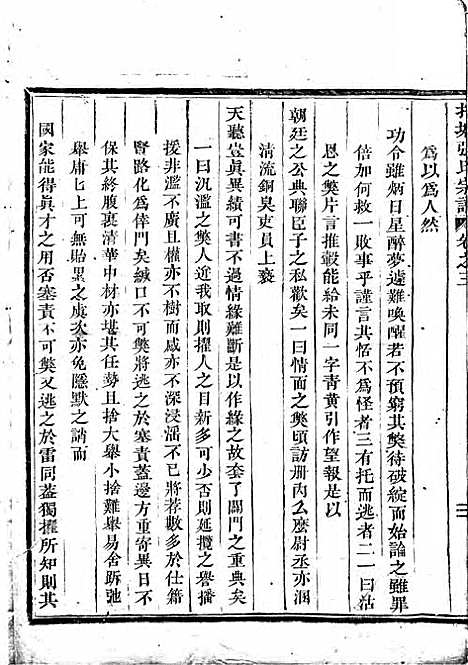 張氏宗譜 卷之三
為以為人然
功令雖炳日星醉夢遽難喚醒若不預窮其獘待破綻而始論之雖罪
倍加何救一敗事乎謹言其恠不為怪者三有托而逃者二一曰沽
恩之獘片言推轂能給未同一字青黃引作望報是以
朝廷之公典聯臣子之私歡矣一曰情面之獘頃訪册內么麼尉丞亦溷
清流銅臭吏員上褻
天聽豈眞異績可書不過情緣難斷是以作緣之故套了闢門之重典矣
一曰沉濫之獘人近我取則擢人之目新多可少否則延攬之譽播
援非濫不廣且權亦不樹而威亦不深浸滛不已將荐數多於仕籍
賢路化為倖門矣緘口不可獘將逃之於塞責蓋邊方重寄異日不
保其終腹裏清華中材亦堪其任勢且捨大舉小捨難舉易舍跅弛
舉庸匕上可無貽累之虞次亦免隱默之誚而
國家能得眞才之用否塞責不可獘又逃之於雷同蓋獨擢所知則其